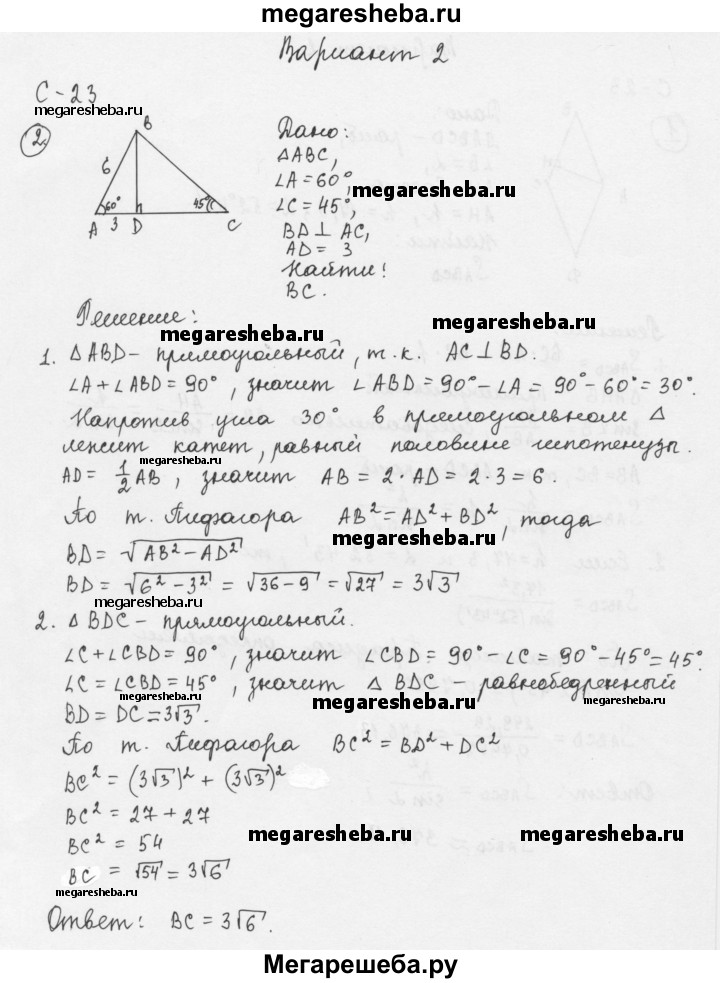 megaresheba.ru
Вариант 2
С-23
megaresheba.ru
2.
B
6
60°
45°
A 3 D C
Дано:
△ABC,
∠A = 60°,
megaresheba.ru
∠C = 45°,
BD ⊥ AC,
AD = 3
Найти:
BC.
Решение:
megaresheba.ru
megaresheba.ru
1. △ABD – прямоугольный, т.к. AC⊥BD.
∠A + ∠ABD = 90°, значит ∠ABD = 90° – ∠A = 90° – 60° = 30°.
Напротив угла 30° в прямоугольном △
лежит катет, равный половине гипотенузы.
megaresheba.ru
AD = 1/2 AB, значит AB = 2·AD = 2·3 = 6.
По т. Пифагора AB² = AD² + BD², тогда
megaresheba.ru
BD = √AB² – AD²
BD = √6² – 3² = √36 – 9 = √27 = 3√3
megaresheba.ru
2. △BDC – прямоугольный.
∠C + ∠CBD = 90°, значит ∠CBD = 90° – ∠C = 90° – 45° = 45°.
∠C = ∠CBD = 45°, значит △BDC – равнобедренный
megaresheba.ru
megaresheba.ru
BD = DC = 3√3.
По т. Пифагора BC² = BD² + DC²
megaresheba.ru
BC² = (3√3)² + (3√3)²
BC² = 27 + 27
BC² = 54
megaresheba.ru
megaresheba.ru
BC = √54 = 3√6
megaresheba.ru
Ответ: BC = 3√6.
Мегарешеба.ру